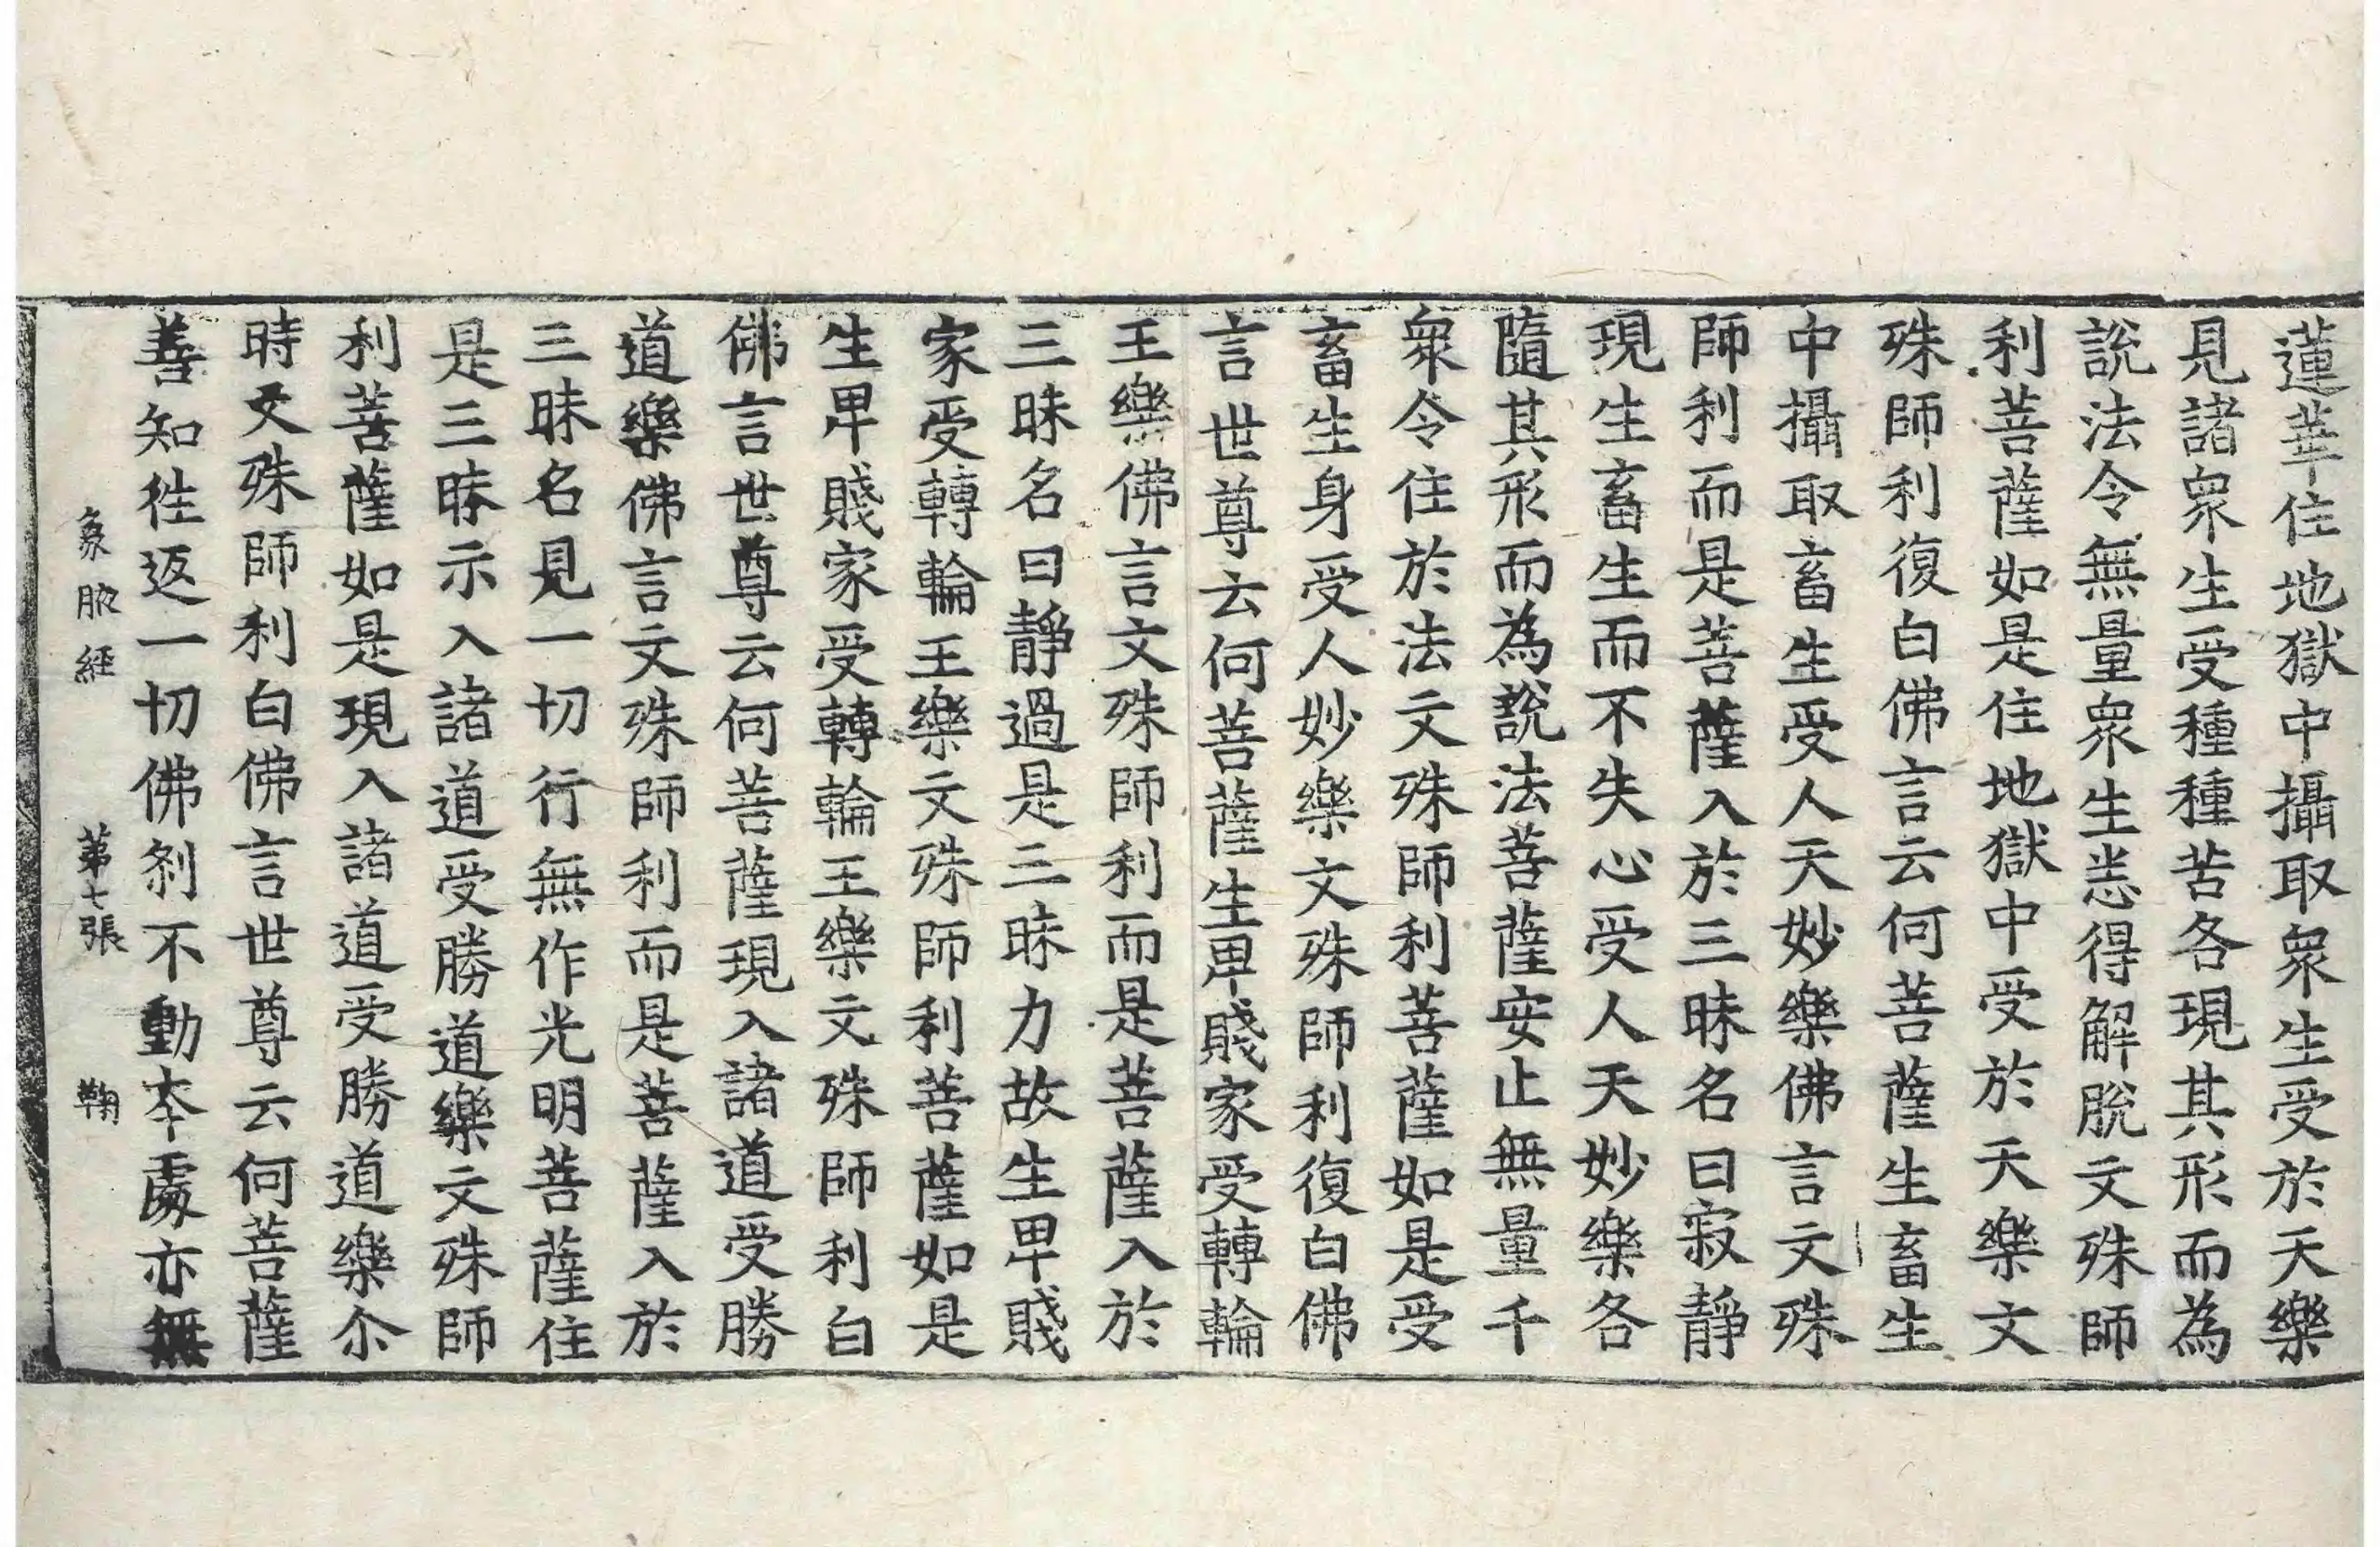 蓮華住地獄中攝取衆生受於天樂
見諸衆生受種種苦各現其形而為
說法令無量衆生悉得解脫文殊師
利菩薩如是住地獄中受於天樂文
殊師利復白佛言云何菩薩生畜生
中攝取畜生受人天妙樂佛言文殊
師利而是菩薩入於三昧名曰寂靜
現生畜生而不失心受人天妙樂各
隨其形而為說法菩薩安止無量千
衆令住於法文殊師利菩薩如是受
畜生身受人妙樂文殊師利復白佛
言世尊云何菩薩生卑賤家受轉輪
王樂佛言文殊師利而是菩薩入於
三昧名曰靜過是三昧力故生卑賤
家受轉輪王樂文殊師利菩薩如是
生卑賤家受轉輪王樂文殊師利白
佛言世尊云何菩薩現入諸道受勝
道樂佛言文殊師利而是菩薩入於
三昧名見一切行無作光明菩薩住
是三昧示入諸道受勝道樂文殊師
利菩薩如是現入諸道受勝道樂尒
時文殊師利白佛言世尊云何菩薩
善知徃返一切佛剎不動本處亦無
象腋經 第七張 鞠